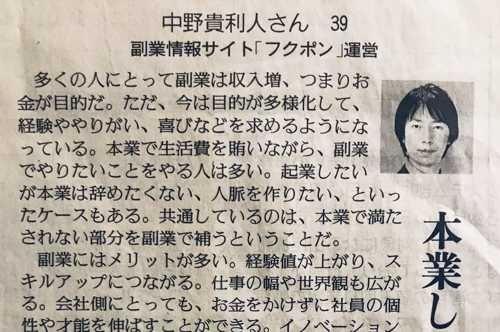 中野貴利人さん　39
副業情報サイト「フクポン」運営
多くの人にとって副業は収入増、つまりお
金が目的だ。ただ、今は目的が多様化して、
経験ややりがい、喜びなどを求めるようにな
っている。本業で生活費を賄いながら、副業
でやりたいことをやる人は多い。起業したい
が本業は辞めたくない、人脈を作りたい、といっ
たケースもある。共通しているのは、本業で満た
されない部分を副業で補うということだ。
副業にはメリットが多い。経験値が上がり、ス
キルアップにつながる。仕事の幅や世界観も広が
る。会社側にとっても、お金をかけずに社員の個
性や才能を伸ばすことができる。イノベーション
本業し